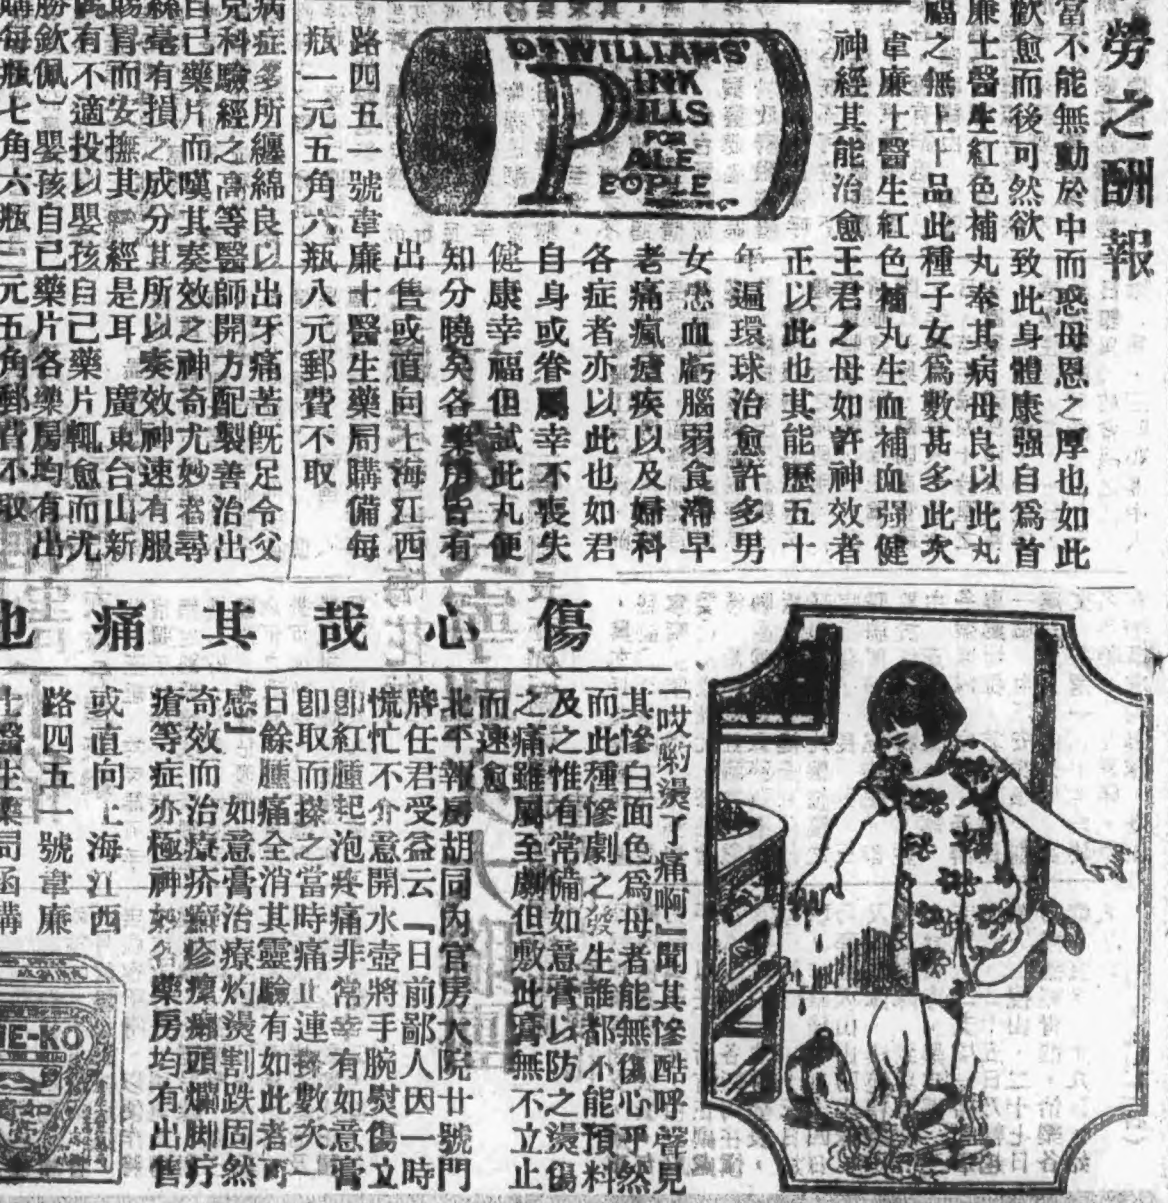 勞之酬報
當不能無動於中而惑母恩之厚也如此
歡愈而後可然欲致此身體康强自爲首
廉士醫生紅色補丸奉其病母良以此丸
福之無上上品此種子女爲數甚多此次
韋廉士醫生紅色補丸生血補血强健
神經其能治愈王君之母如許神效者
正以此也其能歷五十
年遍環球治愈許多男
女患血虧腦弱食滯早
老痛瘋瘧疾以及婦科
各症者亦以此也如君
自身或眷屬幸不喪失
健康幸福但試此丸便
知分曉矣各藥房皆有
出售或直向上海江西
路四五一號韋廉士醫生藥局購備每
瓶一元五角六瓶八元郵費不取
DR WILLIAMS'
PINK
PILLS
FOR
PALE
PEOPLE
病症多所纏綿良以出牙痛苦旣足令父
兒科驗經之高等醫師開方配製善治出
自已藥片而嘆其奏效之神奇尤妙者尋
絲毫有損之成分其所以奏效神速有服
腸胃而安撫其 經是耳 廣東台山新
有不適投以嬰孩自己藥片輒愈而尤
勝欽佩〕嬰孩自已藥片各藥房均有出
購每瓶七角六瓶三元五角郵費不取
傷心哉其痛也
「哎喲燙了痛啊」聞其慘酷呼聲見
其慘白面色爲母者能無傷心乎然
而此種慘劇之發生誰都不能預料
及之惟有常備如意膏以防之燙傷
之痛雖屬至劇但敷此膏無不立止
而速愈
北平報房胡同內官房大院廿號門
牌任君受益云『日前鄙人因一時
慌忙不介意開水壺將手腕熨傷立
卽紅腫起泡疼痛非常幸有如意膏
卽取而搽之當時痛止連搽數次一
日餘腫痛全消其靈驗有如此者可
感』如意膏治療灼燙割跌固然
奇效而治療疥癬疹瘰癩頭爛脚疔
瘡等症亦極神效各藥房均有出售
或直向上海江西
路四五一號韋廉
士醫生藥局函購
NE-KO